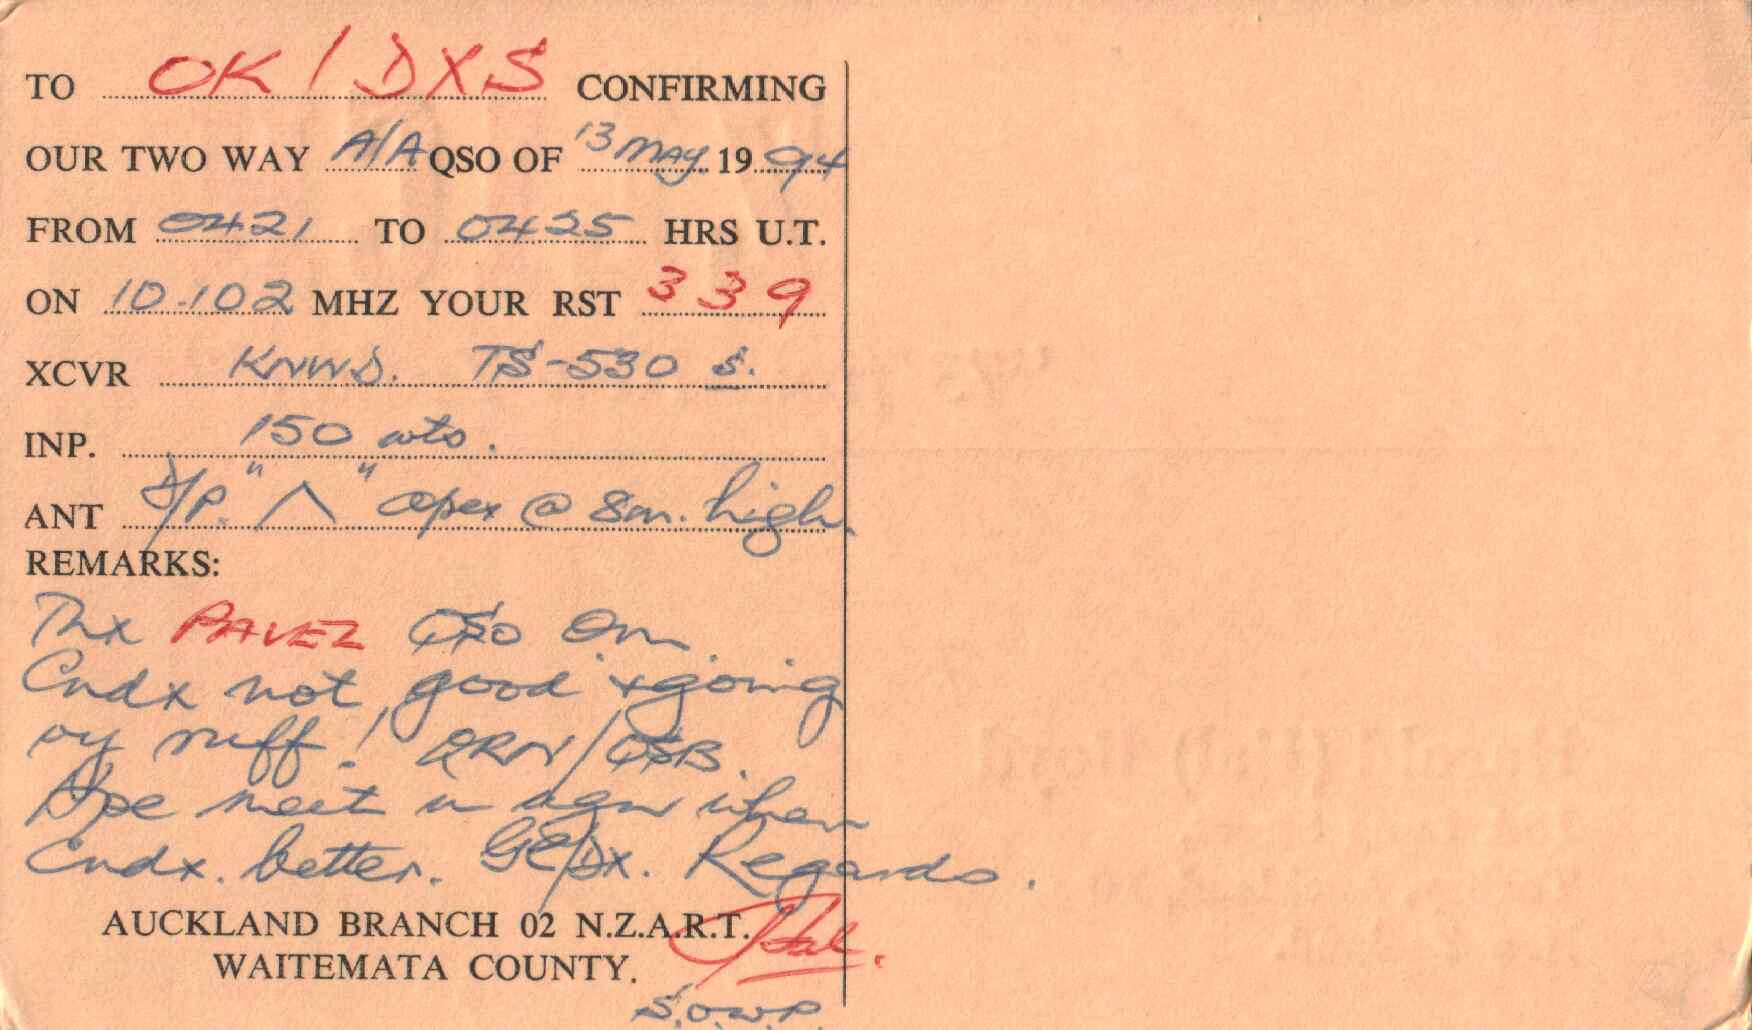 TO OK1DXS CONFIRMING
OUR TWO WAY A/A QSO OF 13 MAY. 1994
FROM 0421 TO 0425 HRS U.T.
ON 10.102 MHZ YOUR RST 339
XCVR KNWD. TS-530 S.
INP. 150 wts.
ANT D/P. "Λ" apex @ 8m. high.
REMARKS:
Thx PAVEZ QSO Om.
Cndx not good + going
vy ruff! QRN/QSB.
Hpe meet u agn when
Cndx. better. GE/DX. Regards.
AUCKLAND BRANCH 02 N.Z.A.R.T. Hal.
WAITEMATA COUNTY.
S.O.W.P.